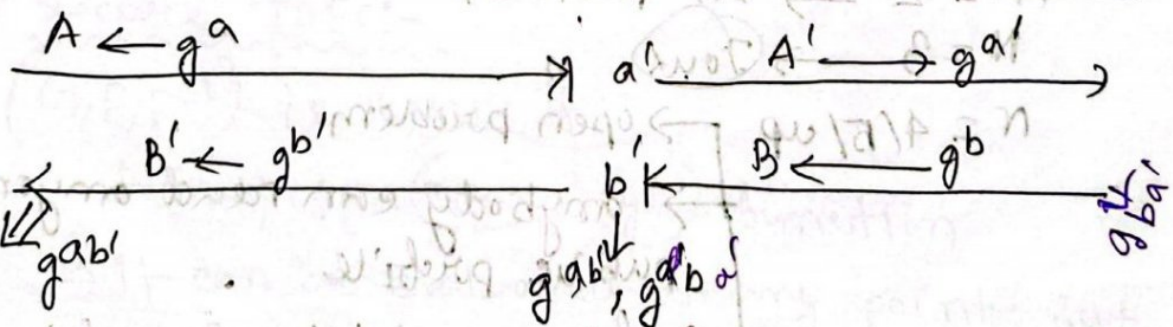 A ← g^a a' A' → g^a'
B' ← g^b' b' B ← g^b
g^ab' g^ab', g^a'b g^ba'